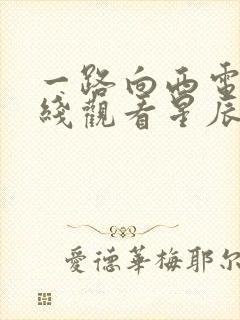 一路向西電
綫觀看星辰
愛德華梅耶尔